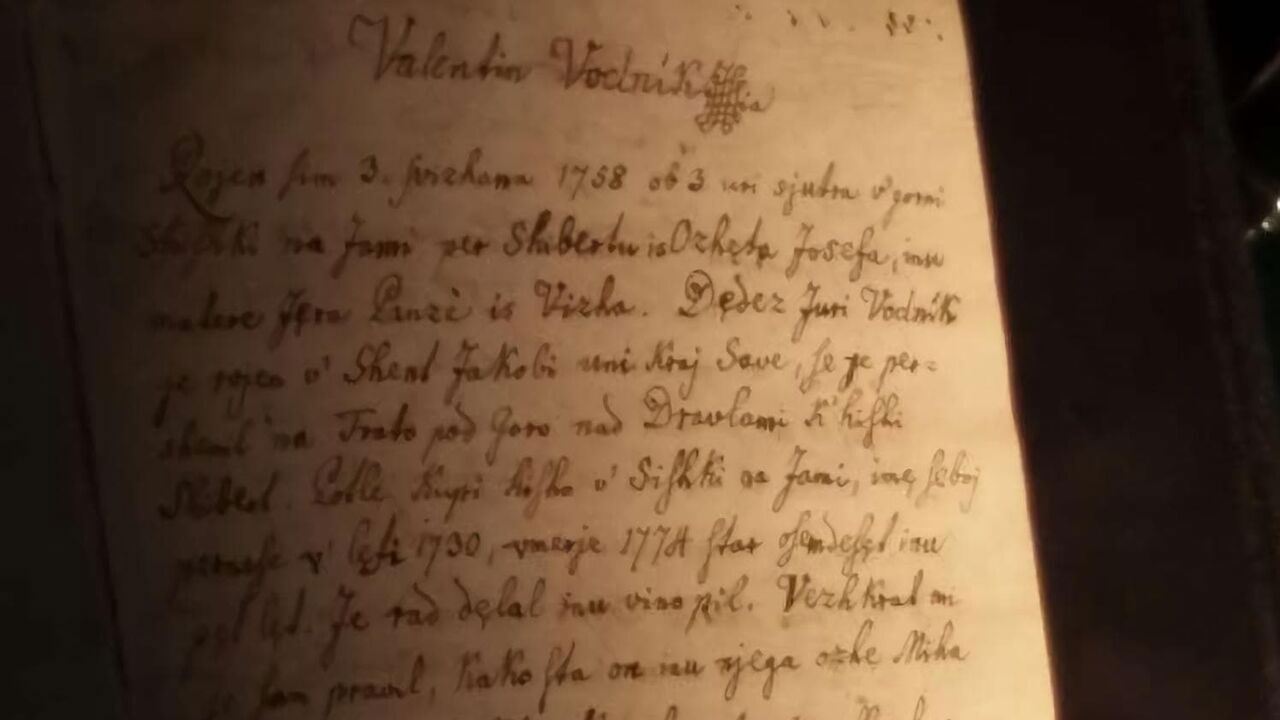 Valentin Vodnik
Rojen ſim 3. ſvizhana 1758 ob 3 uri sjutra v' gorni
Shishki na Jami per Shibertu is Ozhęta Joſefa, inu
matere Jęra Panzè is Vizha. Dędez Juri Vodnik
je rojen v' Shent Jakobi uni kraj Save, ſe je per=
shenil na Trato pod Goro nad Dravlami k' hiſhi
Shibert. Potlè kupi hiſho v' Siſhki na Jami, imę ſeboj
perneſe v' lęti 1730, vmerje 1774 ſtar oſemdeſęt inu
pęt lęt. Je rad dęlal inu vino pil. Vezhkrat mi
je ſam pravil, kako ſta on inu njega ozhe Miha